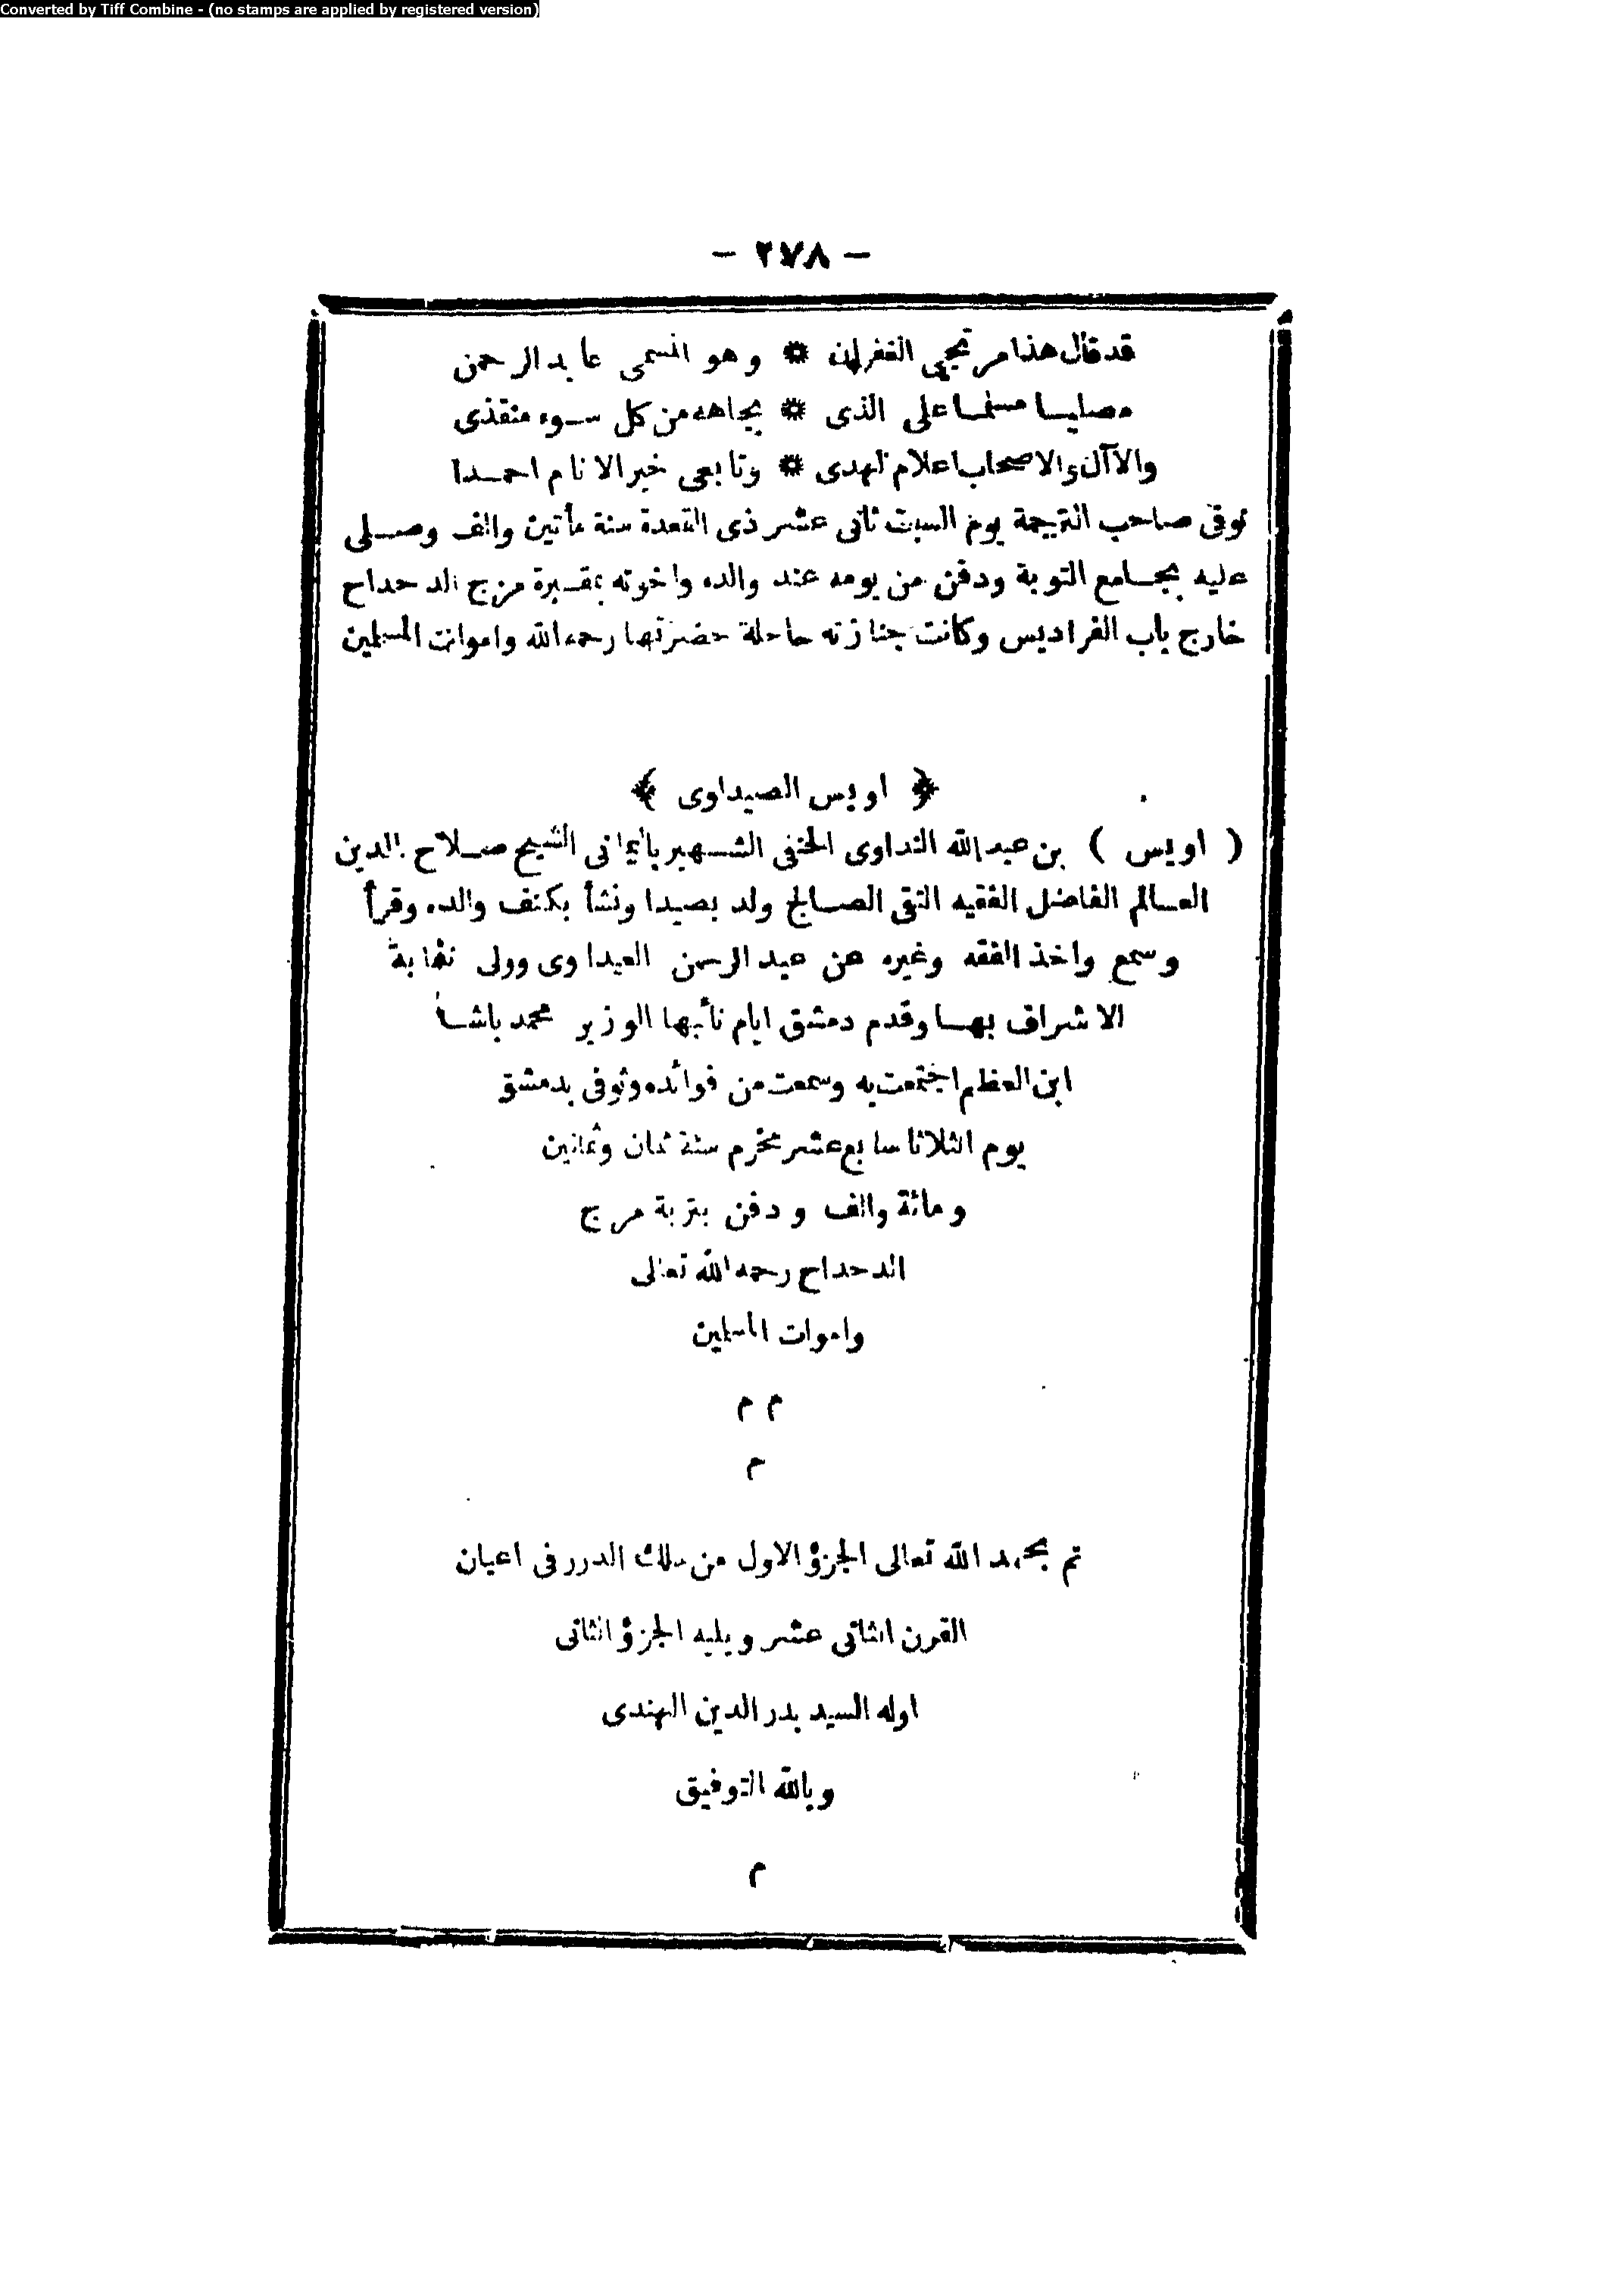 Converted by Tiff Combine - (no stamps are applied by registered version)
— ٢٧٨ —
قد قال هذا مرتجى الغفران ❊ وهو المسمى عابد الرحمن
مصليا مسلما على الذى ❊ بجاهه من كل سوء منقذى
والآل والاصحاب اعلام الهدى ❊ وتابعى خير الانام احمدا
توفى صاحب الترجمة يوم السبت ثانى عشر ذى القعدة سنة مأتين والف وصلى
عليه بجامع التوبة ودفن من يومه عند والده واخوته بمقبرة مرج الدحداح
خارج باب الفراديس وكانت جنازته حافلة حضرتها رحمه الله واموات المسلمين
﴿ اويس الصيداوى ﴾
( اويس ) بن عبدالله الحنفى الشهير الشيخ صلاح الدين
العالم الفاضل الفقيه التقى الصالح ولد بصيدا ونشأ بكنف والده وقرأ
وسمع واخذ الفقه وغيره عن عبد الرحمن الصيداوى وولى نقابة
الاشراف بها وقدم دمشق ايام نائبها الوزير محمد باشا
ابن العظم اجتمعت به وسمعت من فوائده وتوفى بدمشق
يوم الثلاثا سابع عشر محرم سنة ثمان وثمانين
ومائة والف ودفن بتربة مرج
الدحداح رحمه الله تعالى
واموات المسلمين
م م
م
تم بحمد الله تعالى الجزؤ الاول من سلك الدرر فى اعيان
القرن الثانى عشر ويليه الجزؤ الثانى
اوله السيد بدر الدين الهندى
وبالله التوفيق
م